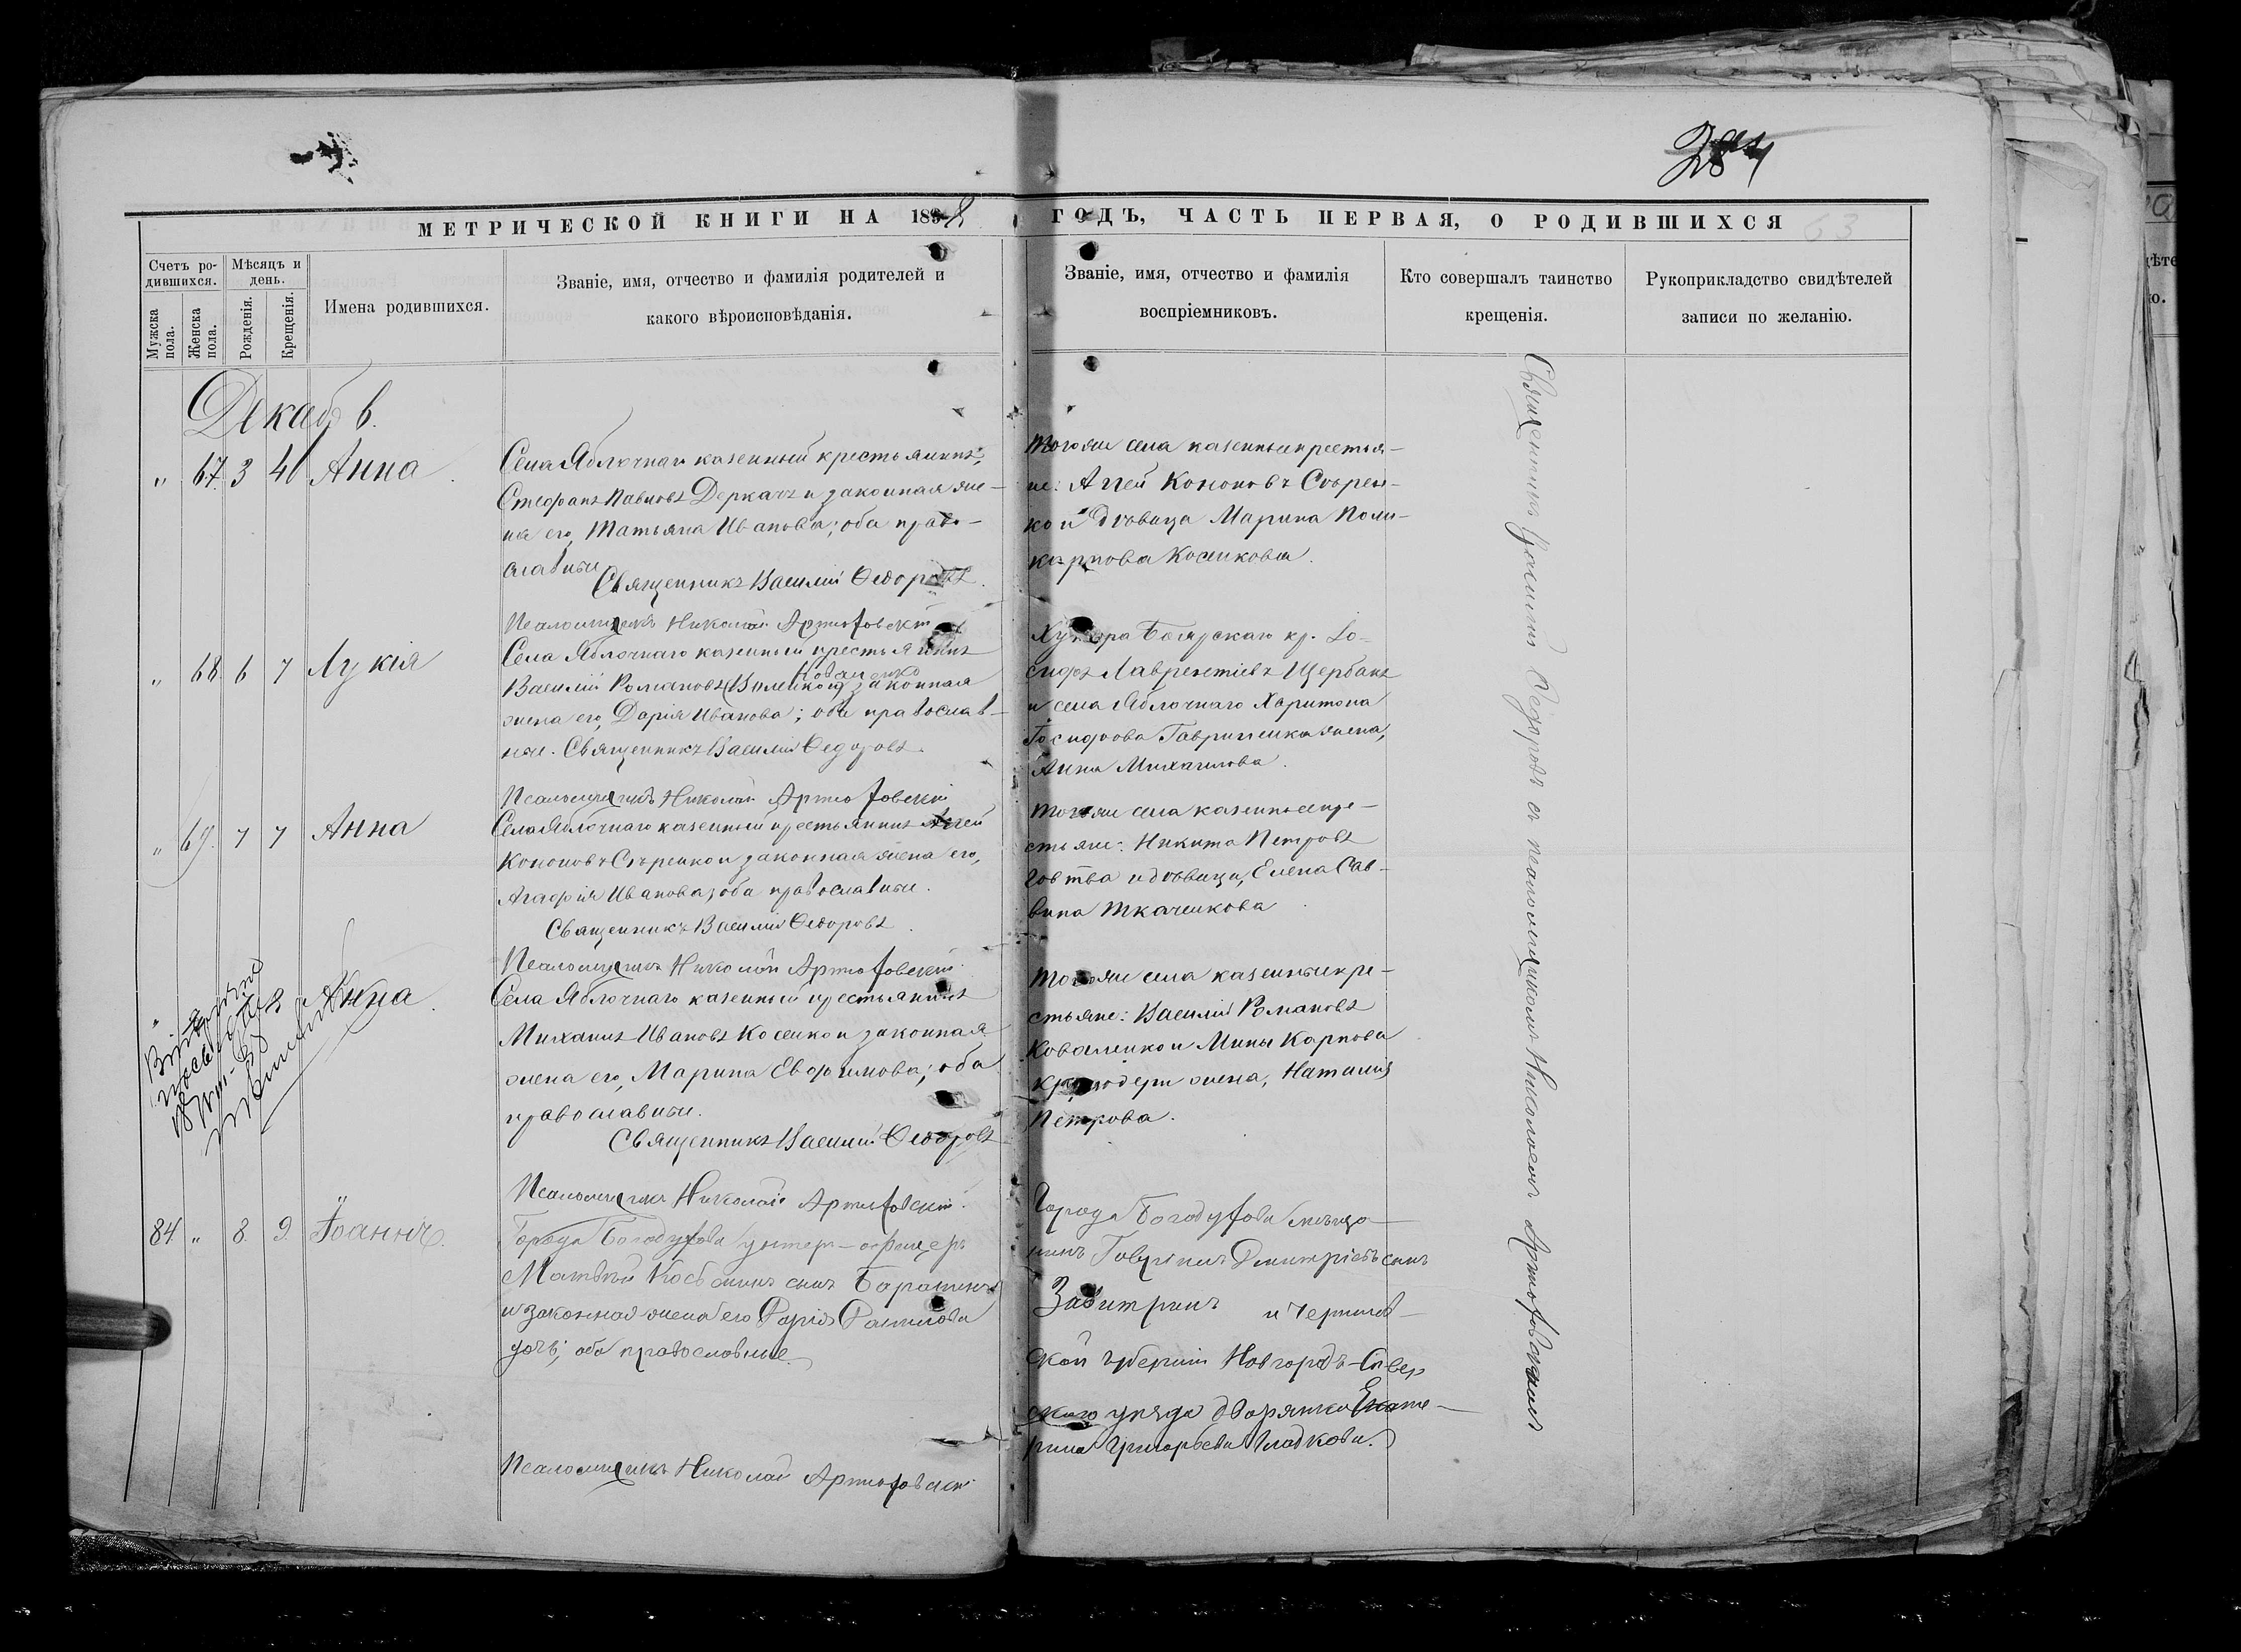 МЕТРИЧЕСКОЙ КНИГИ НА 1898 ГОДЪ, ЧАСТЬ ПЕРВАЯ, О РОДИВШИХСЯ
Счетъ ро-
дившихся.
Мужска
пола.
Женска
пола.
Мѣсяцъ и
день.
Рожденія.
Крещенія.
Имена родившихся.
Званіе, имя, отчество и фамилія родителей и
какого вѣроисповѣданія.
Званіе, имя, отчество и фамилія
воспріемниковъ.
Кто совершалъ таинство
крещенія.
Рукоприкладство свидѣтелей
записи по желанію.
Декабрь.
„ 67 3 Анна
Села Яблочнаго казенный крестьянинъ,
Стефанъ Павловъ Деркачъ и законная же-
на его, Татьяна Иванова; оба право-
славные
Священникъ Василій Ѳедоровъ.
Псаломщикъ Николай Артюховскій
Тогоже села казенные крестья-
не: Аггей Кононовъ Сѣрен-
ко и дѣвица Марина Поли-
карпова Косенкова.
„ 68 6 7 Лукія
Села Яблочнаго казенный крестьянинъ
Василій Романовъ Коваленко и законная
жена его, Дарія Иванова; оба православ-
ные. Священникъ Василій Ѳедоровъ.
Псаломщикъ Николай Артюховскій
Хутора Боярскаго кр. Іо-
сифъ Лаврентіевъ Щербакъ
и села Яблочнаго Харитона
Іосифова Гавриленка жена,
Анна Михаилова.
„ 69. 7 7 Анна
Села Яблочнаго казенный крестьянинъ Аггей
Кононовъ Сѣренко и законная жена его,
Агафія Иванова; оба православные.
Священникъ Василій Ѳедоровъ.
Псаломщикъ Николай Артюховскій
Тогоже села казенные кре-
стьяне: Никита Петровъ
и дѣвица, Елена Сав-
вина Ткаченкова
„ 8 Анна.
Села Яблочнаго казенный крестьянинъ
Михаилъ Ивановъ Косенко и законная
жена его, Марина Евфимова; оба
православные.
Священникъ Василій Ѳедоровъ
Псаломщикъ Николай Артюховскій.
Тогоже села казенные кре-
стьяне: Василій Романовъ
Коваленко и Мины Карпова
жена, Наталія
Петрова.
84 „ 8. 9. Іоаннъ.
Города Богодухова унтеръ-офицеръ
Матвѣй сынъ
и законная жена его Дарія
дочь; оба православные.
Псаломщикъ Николай Артюховскій
Города Богодухова мѣща-
нинъ Гавріилъ Дмитріевъ сынъ
и Чернигов-
ской губерніи Новгородъ-Сѣвер
скаго уѣзда дворянка Екате-
рина Григорьева Гладкова.
Священникъ Василій Ѳедоровъ съ псаломщикомъ Николаемъ Артюховскимъ